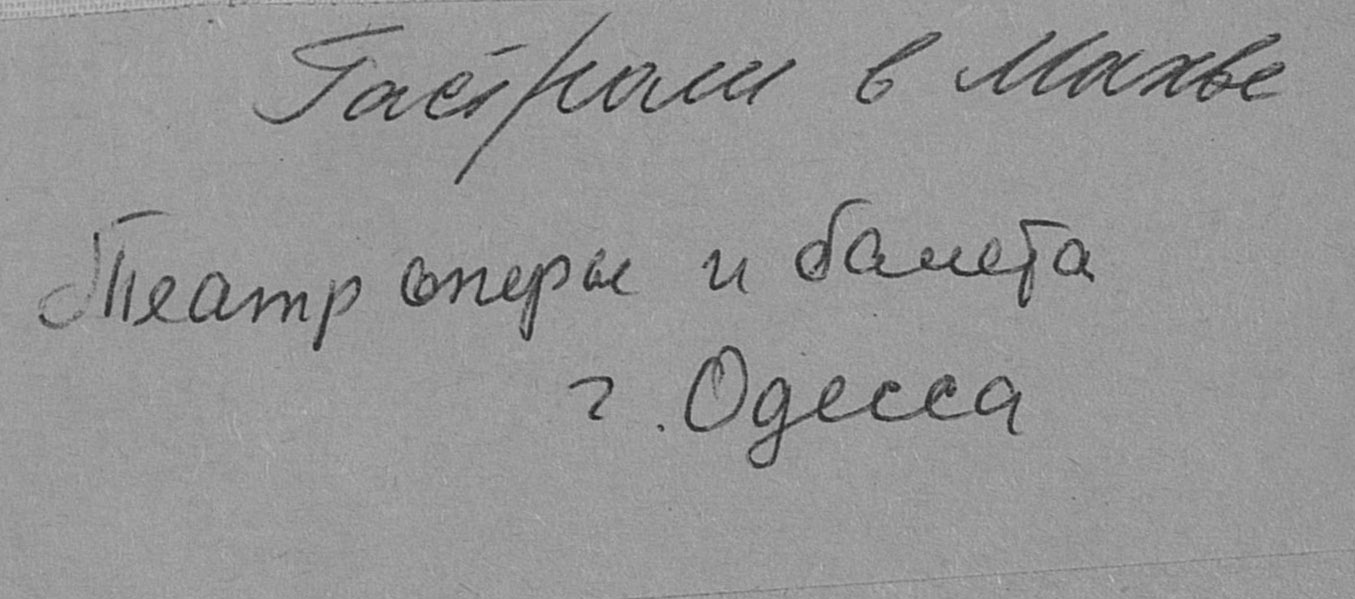 Гастроли в Москве
Театр оперы и балета
г. Одесса